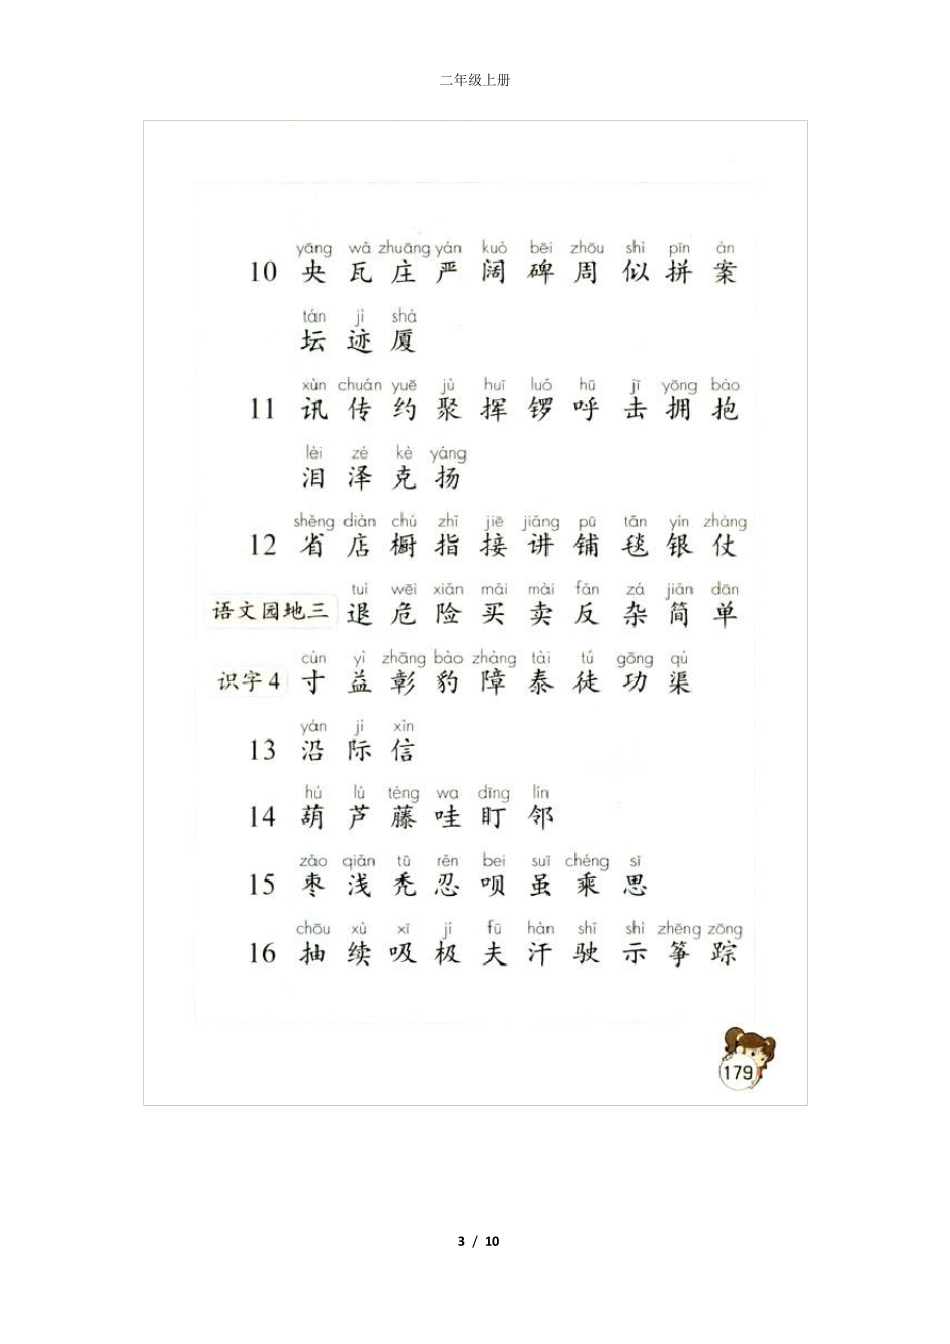 二年级上册
yāng wǎ zhuāng yán kuò bēi zhōu shì pīn àn
10 央 瓦 庄 严 阔 碑 周 似 拼 案
tán jì shà
坛 迹 厦
xùn chuán yuē jù huī luó hū jī yōng bào
11 讯 传 约 聚 挥 锣 呼 击 拥 抱
lèi zé kè yáng
泪 泽 克 扬
shěng diàn chú zhǐ jiē jiǎng pū tǎn yín zhàng
12 省 店 橱 指 接 讲 铺 毯 银 仗
tuì wēi xiǎn mǎi mài fǎn zá jiǎn dān
语文园地三 退 危 险 买 卖 反 杂 简 单
cùn yì zhāng bào zhàng tài tú gōng qú
识字4 寸 益 彰 豹 障 泰 徒 功 渠
yán jì xìn
13 沿 际 信
hú lú téng wa dīng lín
14 葫 芦 藤 哇 盯 邻
zǎo qiǎn tū rěn bei suī chéng sī
15 枣 浅 秃 忍 呗 虽 乘 思
chōu xù xī jí fū hàn shǐ shì zhēng zōng
16 抽 续 吸 极 夫 汗 驶 示 筝 踪
179
3 / 10